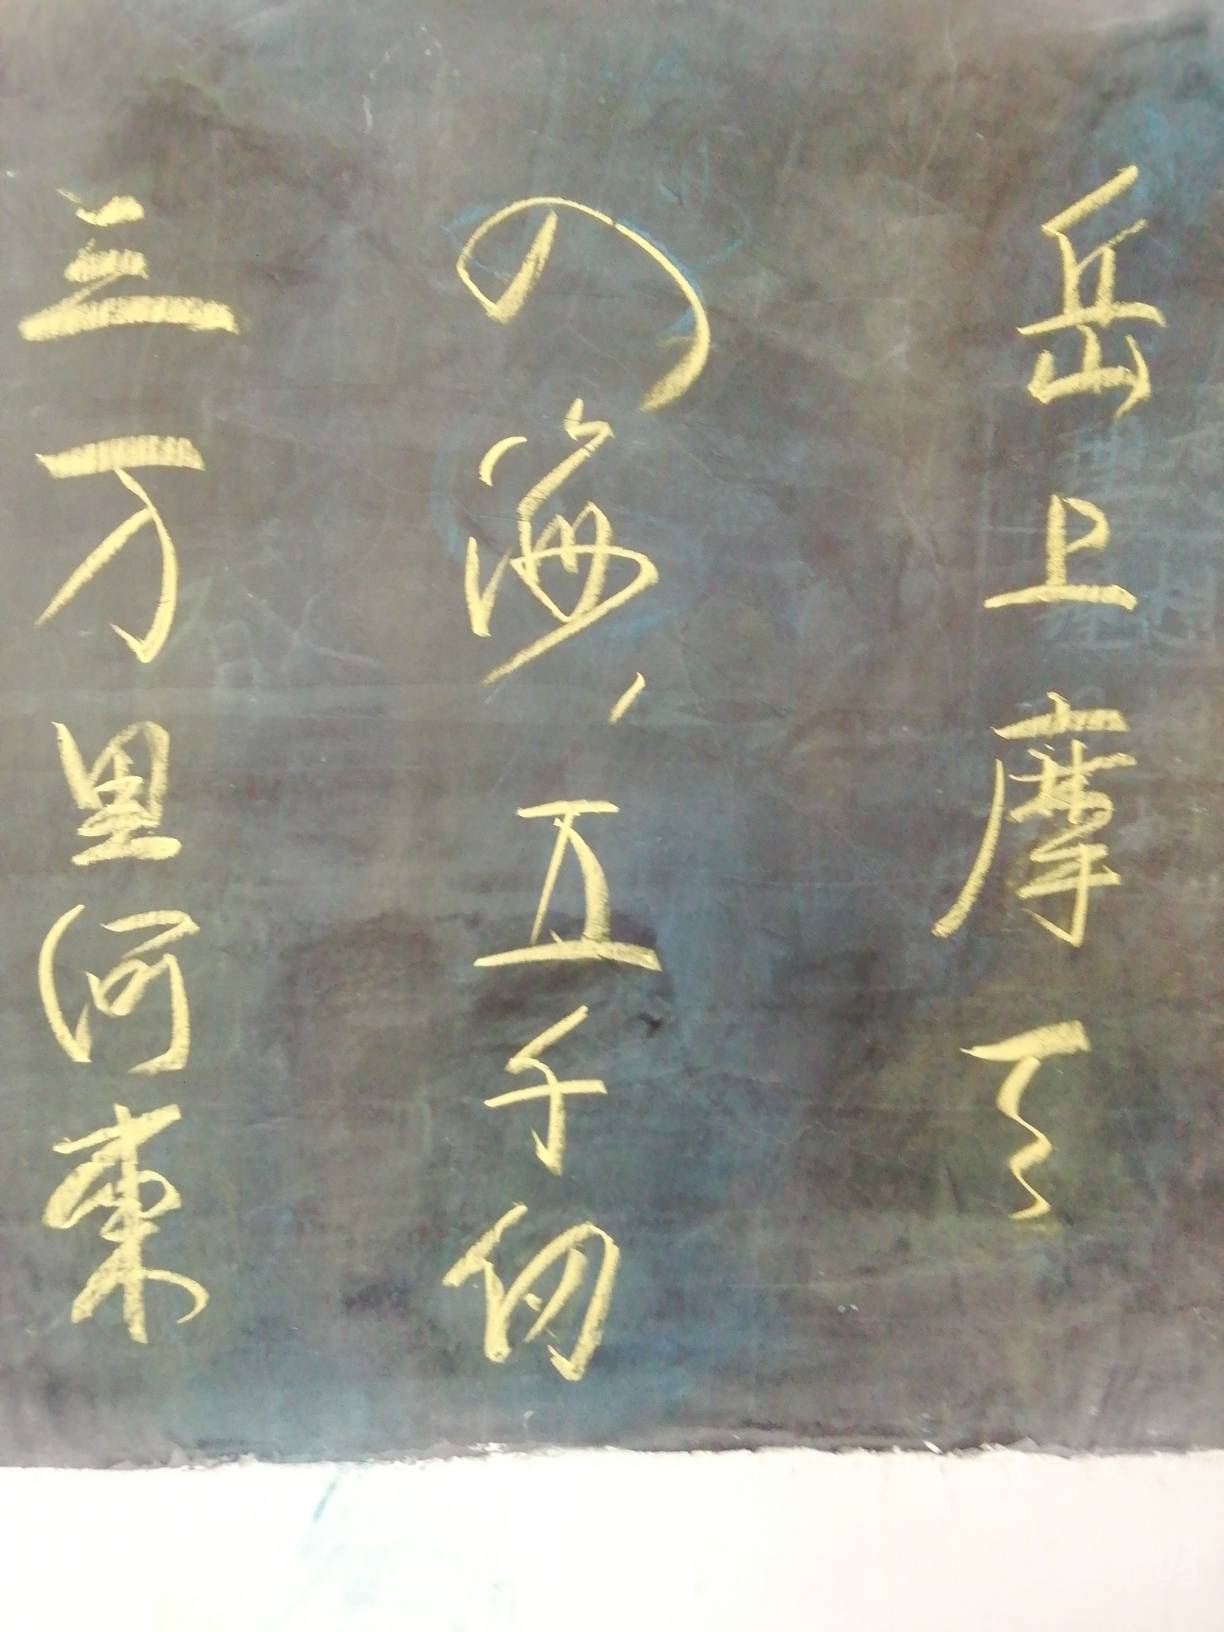 三万里河東
入海，五千仞
岳上摩天